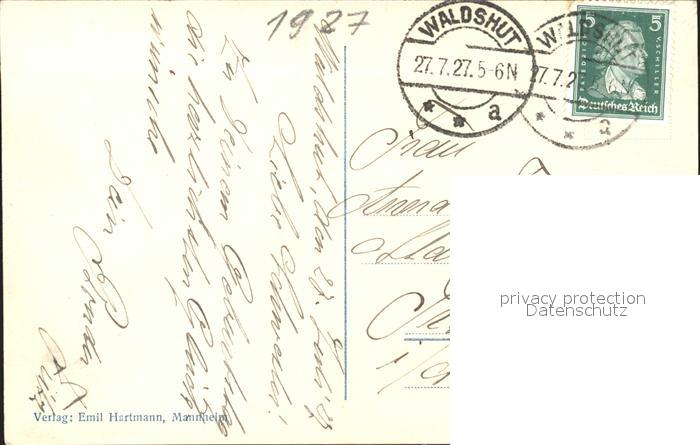 1927
WALDSHUT
27.7.27.5-6N
a
WALDSHUT
27.7.27
N
a
5
5
FRIEDRICH
V. SCHILLER
Deutsches Reich
Waldshut, den 27. Juli 27
Liebe Schwester!
Zu Deinem Geburtstag
die herzlichsten Glück
wünsche
Dein Bruder
Frau
privacy protection
Datenschutz
Verlag: Emil Hartmann, Mannheim